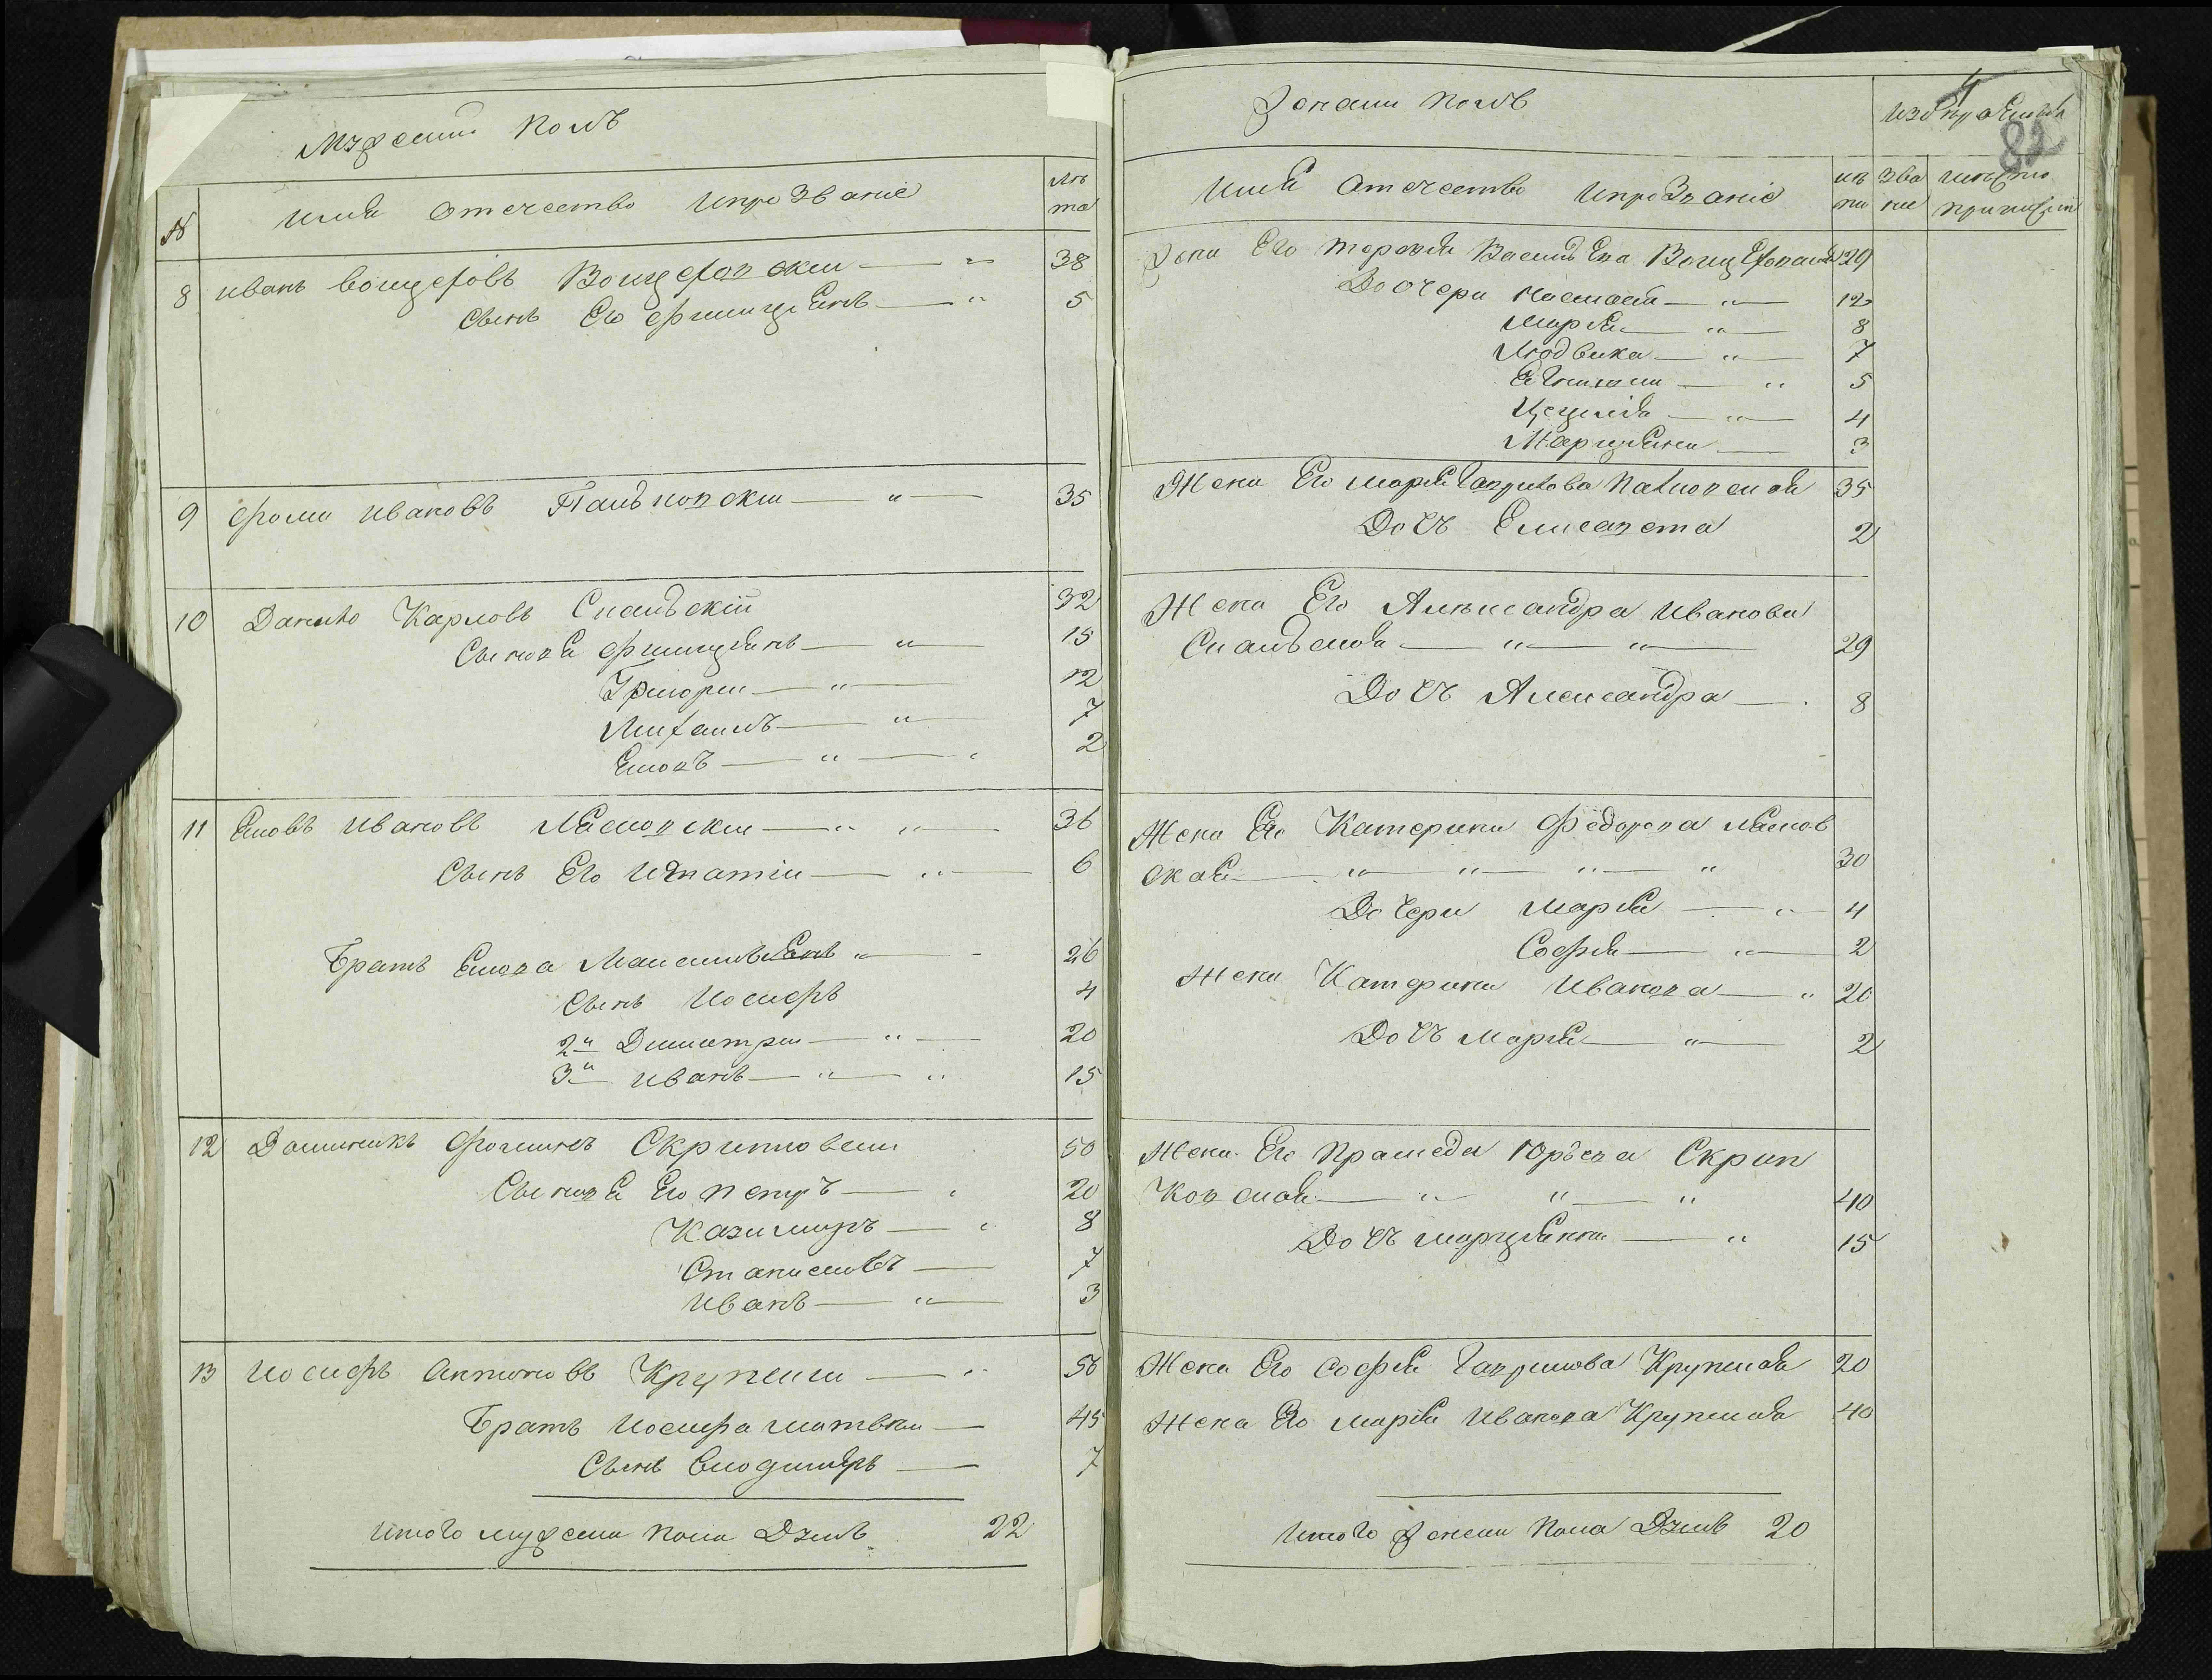 Мужеский Полъ
№
имя отечество ипрозвание
лѣ
та
8 иванъ воицеховъ Воицеховский 38
Сынъ Его Фелицианъ 5
9 Фома ивановъ 35
10 Данило Карловъ Скальский 32
Сыновья Фелициянъ 15
Григорий 12
Михаилъ 7
Яковъ 2
11 Яковъ ивановъ Лясковский 36
Сынъ Его игнатий 6
Братъ Якова Максимилиянъ 26
Сынъ иосифъ 4
2й Димитрий 20
3й иванъ 15
12 Доминикъ Фоминъ 50
Сыновья Его петръ 20
Казимиръ 8
Станиславъ 7
иванъ 3
13 иосифъ Антоновъ Крупский 56
Братъ иосифа матвей 45
Сынъ владимиръ 7
итого мужеска пола Душъ 22
женский полъ
4
82
имя отечество ипрозвание
лѣ
та
зва
ние
жена Его Васильева 29
Дочери 12
Мария 8
Людвика 7
5
Цецилия 4
Марцияна 3
Жена Его мария Гаврилова 35
Дочъ Елисавета 2
Жена Его Александра иванова
Скальская 29
Дочъ Александра 8
Жена Его Катерина Федорова Лясков
ская 30
Дочери Мария 4
София 2
Жена Катерина иванова 20
Дочъ мария 2
Жена Его Юрьева Скрип
ковская 40
Дочъ марцияна 15
Жена Его София Гаврилова Крупская 20
Жена Его мария иванова Крупская 40
итого женска пола Душъ 20